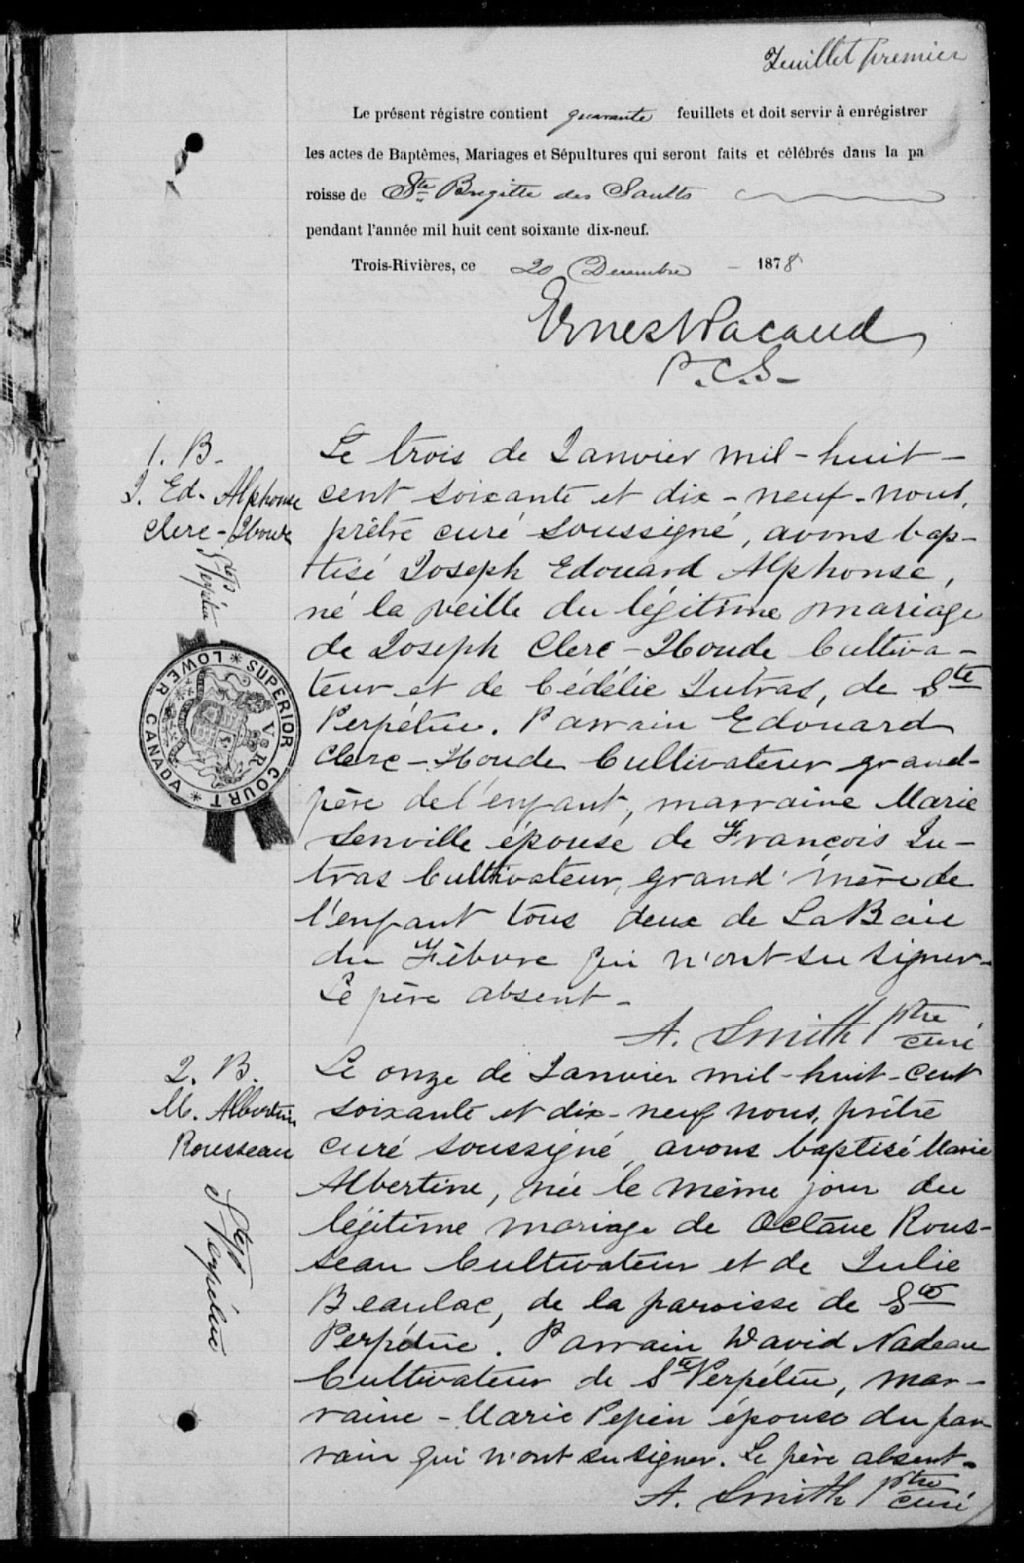 Feuillet premier
Le présent régistre contient quarante feuillets et doit servir à enrégistrer
les actes de Baptêmes, Mariages et Sépultures qui seront faits et célébrés dans la pa
roisse de Ste Brigitte des Saults
pendant l'année mil huit cent soixante dix-neuf.
Trois-Rivières, ce 20 Decembre – 1878
Ernest Pacaud
P.C.S-
1. B.
J. Ed. Alphonse
Clerc-Houde
Ste Perpétue
SUPERIOR COURT * LOWER CANADA *
V R
Le trois de Janvier mil-huit-
cent soixante et dix-neuf-nous,
prêtre curé soussigné, avons bap-
tisé Joseph Edouard Alphonse,
né la veille du légitime mariage
de Joseph Clerc-Houde Cultiva-
teur et de Cédélie Jutras, de Ste
Perpétue. Parrain Edouard
Clerc-Houde Cultivateur grand-
père de l'enfant, marraine Marie
Lenville épouse de François Ju-
tras Cultivateur, grand'mère de
l'enfant tous deux de La Baie
du Fèbvre qui n'ont su signer-
Le père absent-
A. Smith Ptre curé
2. B.
M. Albertine
Rousseau
Ste Perpétue
Le onze de Janvier mil-huit-cent
soixante et dix-neuf nous, prêtre
curé soussigné, avons baptisé Marie
Albertine, née le même jour du
légitime mariage de Octave Rous-
seau Cultivateur et de Julie
Beaulac, de la paroisse de Ste
Perpétue. Parrain David Nadeau
Cultivateur de Ste Perpétue, mar-
raine-Marie Pepin épouse du par
rain qui n'ont su signer. Le père absent-
A. Smith Ptre curé